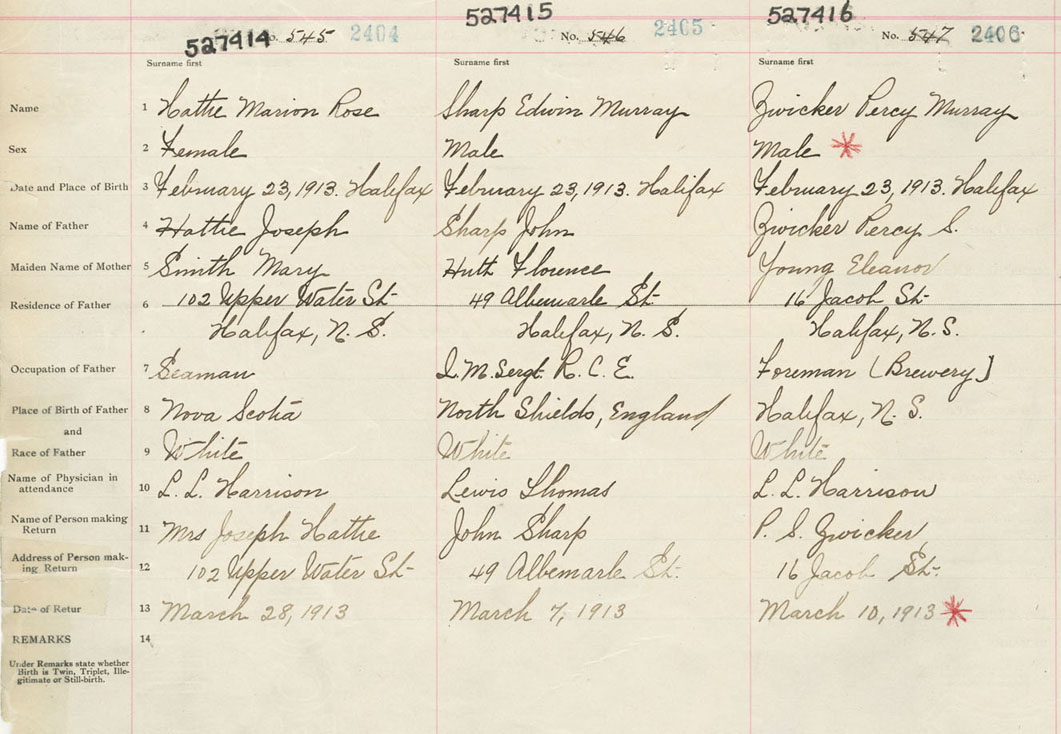 527414 527415 527416
No. 545 2404 No. 546 2405 No. 547 2406
Surname first Surname first Surname first
Name 1 Hattie Marion Rose Sharp Edwin Murray Zwicker Percy Murray
Sex 2 Female Male Male
Date and Place of Birth 3 February 23, 1913. Halifax February 23, 1913. Halifax February 23, 1913. Halifax
Name of Father 4 Hattie Joseph Sharp John Zwicker Percy S.
Maiden Name of Mother 5 Smith Mary Huth Florence Young Eleanor
Residence of Father 6 102 Upper Water St. 49 Albemarle St. 16 Jacob St.
Halifax, N. S. Halifax, N. S. Halifax, N.S.
Occupation of Father 7 Seaman I. M. Sergt. R. C. E. Foreman (Brewery)
Place of Birth of Father 8 Nova Scotia North Shields, England Halifax, N. S.
and
Race of Father 9 White White White
Name of Physician in
attendance 10 L. L. Harrison Lewis Thomas L. L. Harrison
Name of Person making
Return 11 Mrs Joseph Hattie John Sharp P. S. Zwicker
Address of Person mak-
ing Return 12 102 Upper Water St. 49 Albemarle St. 16 Jacob St.
Date of Retur 13 March 28, 1913 March 7, 1913 March 10, 1913
REMARKS 14
Under Remarks state whether
Birth is Twin, Triplet, Ille-
gitimate or Still-birth.